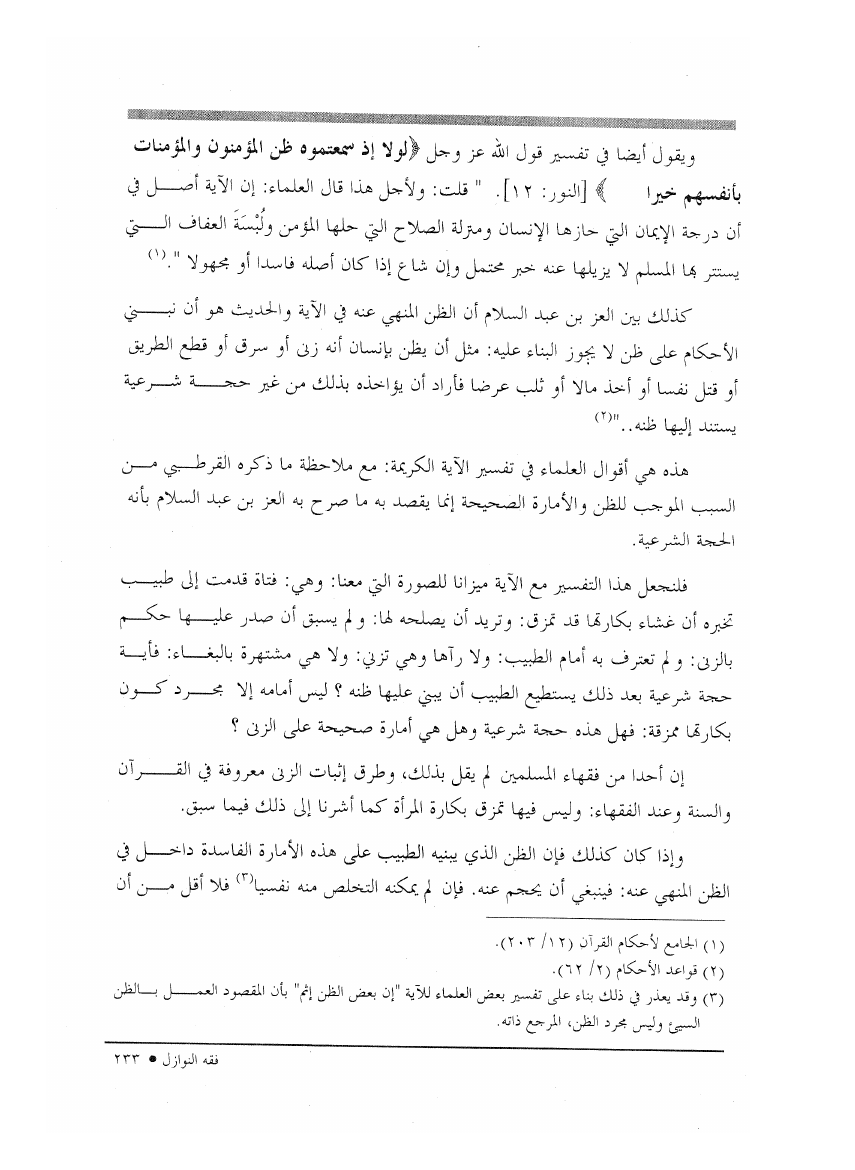 ويقول أيضا في تفسير قول الله عز وجل ﴿لولا إذ سمعتموه ظن المؤمنون والمؤمنات
بأنفسهم خيرا ﴾ [النور: ١٢]. " قلت: ولأجل هذا قال العلماء: إن الآية أصل في
أن درجة الإيمان التي حازها الإنسان ومنزلة الصلاح التي حلها المؤمن ولُبْسَةَ العفاف التي
يستتر بها المسلم لا يزيلها عنه خبر محتمل وإن شاع إذا كان أصله فاسدا أو مجهولا ".(١)
كذلك بين العز بن عبد السلام أن الظن المنهي عنه في الآية والحديث هو أن نبني
الأحكام على ظن لا يجوز البناء عليه: مثل أن يظن بإنسان أنه زنى أو سرق أو قطع الطريق
أو قتل نفسا أو أخذ مالا أو ثلب عرضا فأراد أن يؤاخذه بذلك من غير حجة شرعية
يستند إليها ظنه.."(٢)
هذه هي أقوال العلماء في تفسير الآية الكريمة: مع ملاحظة ما ذكره القرطبي من
السبب الموجب للظن والأمارة الصحيحة إنما يقصد به ما صرح به العز بن عبد السلام بأنه
الحجة الشرعية.
فلنجعل هذا التفسير مع الآية ميزانا للصورة التي معنا: وهي: فتاة قدمت إلى طبيب
تخبره أن غشاء بكارتها قد تمزق: وتريد أن يصلحه لها: ولم يسبق أن صدر عليها حكم
بالزنى: ولم تعترف به أمام الطبيب: ولا رآها وهي تزني: ولا هي مشتهرة بالبغاء: فأية
حجة شرعية بعد ذلك يستطيع الطبيب أن يبني عليها ظنه ؟ ليس أمامه إلا مجرد كون
بكارتها ممزقة: فهل هذه حجة شرعية وهل هي أمارة صحيحة على الزنى ؟
إن أحدا من فقهاء المسلمين لم يقل بذلك، وطرق إثبات الزنى معروفة في القرآن
والسنة وعند الفقهاء: وليس فيها تمزق بكارة المرأة كما أشرنا إلى ذلك فيما سبق.
وإذا كان كذلك فإن الظن الذي يبنيه الطبيب على هذه الأمارة الفاسدة داخل في
الظن المنهي عنه: فينبغي أن يحجم عنه. فإن لم يمكنه التخلص منه نفسيا(٣) فلا أقل من أن
(١) الجامع لأحكام القرآن (١٢/ ٢٠٣).
(٢) قواعد الأحكام (٢/ ٦٢).
(٣) وقد يعذر في ذلك بناء على تفسير بعض العلماء للآية "إن بعض الظن إثم" بأن المقصود العمل بالظن
السيئ وليس مجرد الظن، المرجع ذاته.
فقه النوازل • ٢٣٣